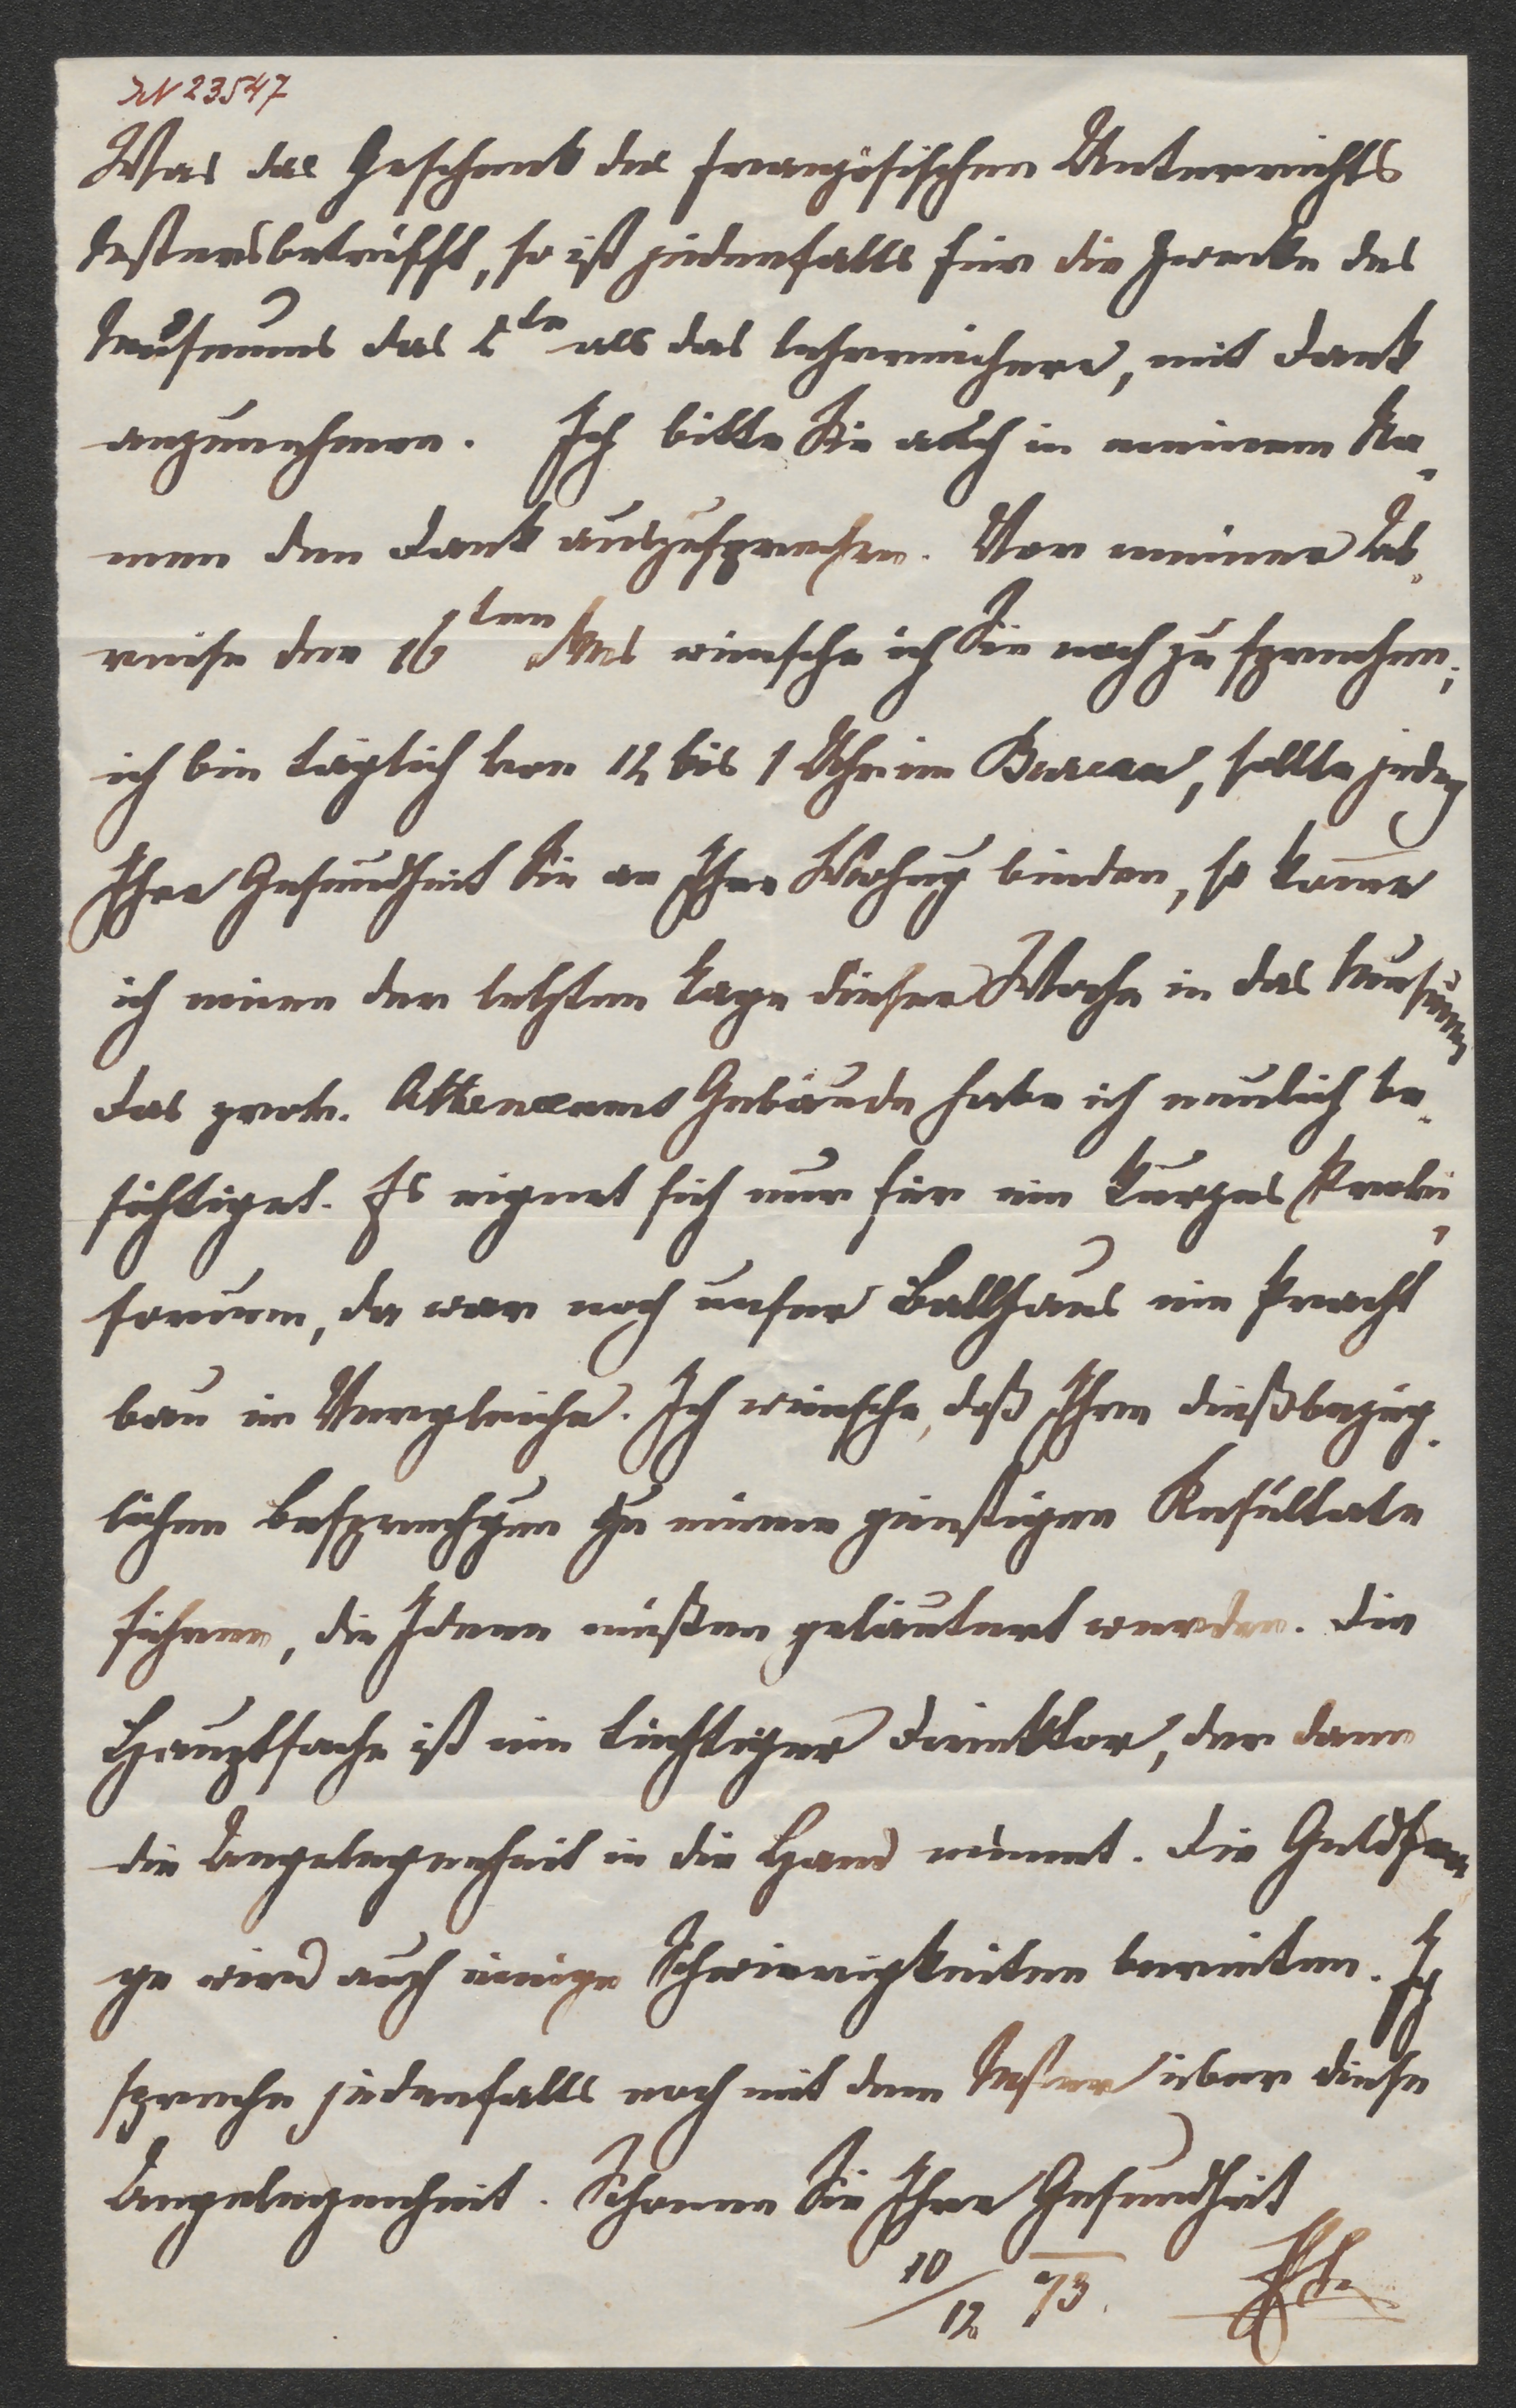 IN 23547
Was das Geschenk des französischen Unterrichts
betrifft, so ist jedenfalls für die Zwecke des
Museums das 2te als das lehrreichere, mit Dank
anzunehmen. Ich bitte Sie auch in meinem Na-
men den Dank auszusprechen. Vor meiner Ab-
reise den 16ten wünsche ich Sie noch zu sprechen;
ich bin täglich von 12 bis 1 Uhr im Bureau, sollte jedoch
Ihre Gesundheit Sie an Ihre Wohng binden, so kom̄e
ich einen der letzten Tage dieser Woche in das Museum
Das prov. Gebäude habe ich neulich be-
sichtiget. Es eignet sich nur für ein kurzes Provi-
sorium, da war noch unser Ballhaus ein Pracht
bau im Vergleiche. Ich wünsche, daß Ihre dießbezüg-
lichen Besprechgen zu einem günstigen Resultate
führen, die Ideen müßen geläutert werden. Die
Hauptsache ist ein tüchtiger Direktor, der dann
die Angelegenheit in die Hand nimmt. Die Geldfra-
ge wird auch einige Schwierigkeiten bereiten. Ich
spreche jedenfalls noch mit dem über diese
Angelegenheit. Schonen Sie Ihre Gesundheit
10/12 73.